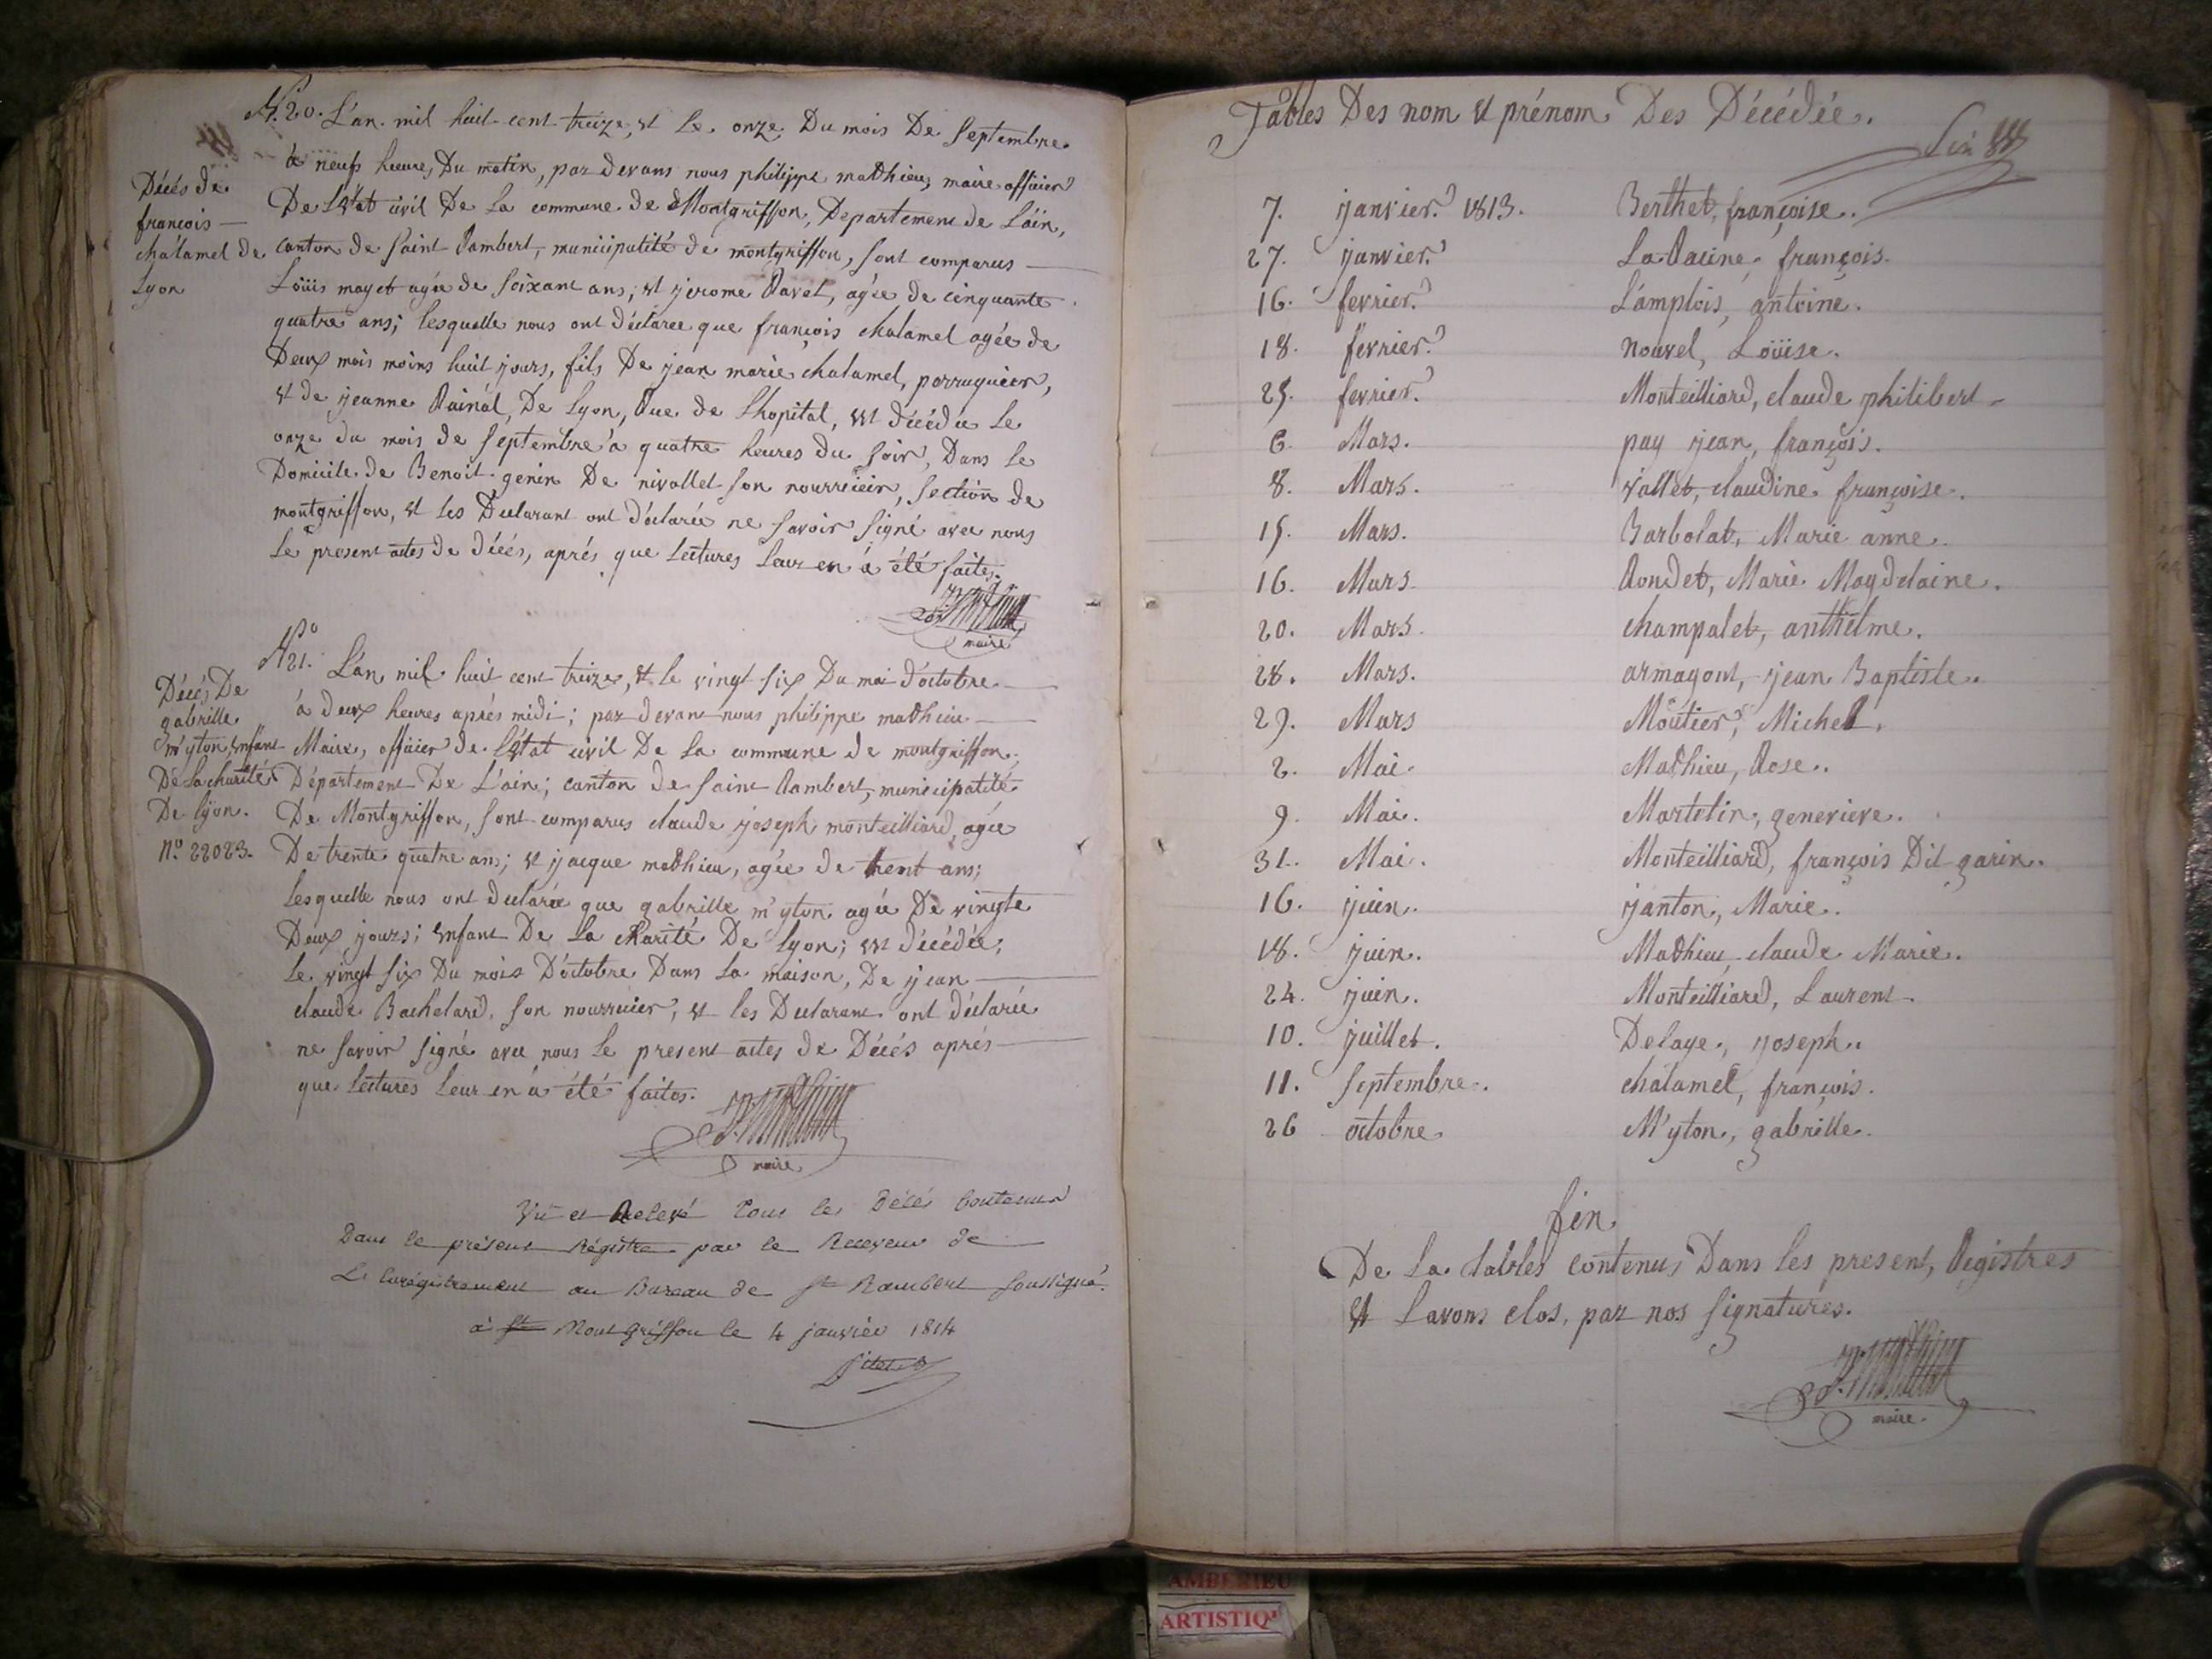 N.o 20. L'an mil huit cent treize, et le onze Du mois De Septembre
à neufs heure, Du matin, par devans nous philippe mathieu, maire officier
De L'Etat civil De la commune de Montgriffon, Departement de L'äin,
canton de Saint Rambert, municipalité de montgriffon, sont comparus
Loüis mayet agée de soixant ans; et jerome Ravet, agée de cinquante
quatre ans; lesquelle nous ont déclarée que françois chalamel agée de
Deux mois moins huit jours, fils De jean marie chalamel, perruquier,
et de jeanne Rainal, De Lyon, Rue de Lhopital, est décédée Le
onze du mois de Septembre à quatre heures du soir, Dans le
Domicile de Benoit genin De nivollet son nourricier, section de
montgriffon, et les Declarant ont déclarée ne savoir signé avec nous
le present actes de décés, aprés que lectures leur en à été faites.
maire
Décés de
françois
chalamel de
Lyon
N.o 21. L'an mil huit cent treize, et le vingt six Du moi d'octobre
à deux heures aprés midi; par devant nous philippe mathieu
Maire, officier de L'Etat civil De la commune de montgriffon,
Département De L'ain; canton de saint Rambert, municipalité
De Montgriffon, sont comparus claude joseph monteilliard, agée
De trente quatre ans; et jacque mathieu, agée de trent ans;
lesquelle nous ont declarée que gabrille m'yton agée De vingte
Deux jours; Enfant De La charité De Lyon; est décédée;
Le vingt six Du mois D'octobre Dans la maison, De jean
claude Bachelard, son nourricier, et les Declarant ont déclarée
ne savoir signé avec nous le present actes de Décés aprés
que lectures leur en à été faites.
maire
Décés De
gabrille
m'yton, Enfant
De La charité
De lyon.
N.o 22023.
Vu et Relevé tous les décés Contenus
Dans le présent Régistre par le Receveur de
L'Enregistrement au Bureau de St Rambert soussigné.
à St Montgriffon le 4 janvier 1814
Tables Des nom et prénom Des Décédée.
7. janvier. 1813. Berthet, françoise.
27. janvier. La Racine, françois.
16. fevrier. L'amplois, antoine.
18. fevrier. nouvel, Loüise.
25. fevrier. Monteilliard, claude philibert
6. Mars. pay jean, françois.
8. Mars. vallet, claudine françoise.
15. Mars. Barbolat, Marie anne.
16. Mars. Rondet, Marie Magdelaine.
20. Mars. champalet, anthelme.
28. Mars. armagont, jean Baptiste.
29. Mars Moutier, Michel.
2. Mai. Mathieu, Rose.
9. Mai. Martelin, genevieve.
31. Mai. Monteilliard, françois Dit garin.
16. juin. janton, Marie.
18. juin. Mathieu claude Marie.
24. juin. Monteilliard, Laurent.
10. juillet. Delaye, joseph.
11. septembre. chalamel, françois.
26 octobre M'yton, gabrille.
fin
De La tables contenus Dans les present, Registres
et Lavons clos, par nos signatures.
maire.
AMBERIEU
ARTISTIQ